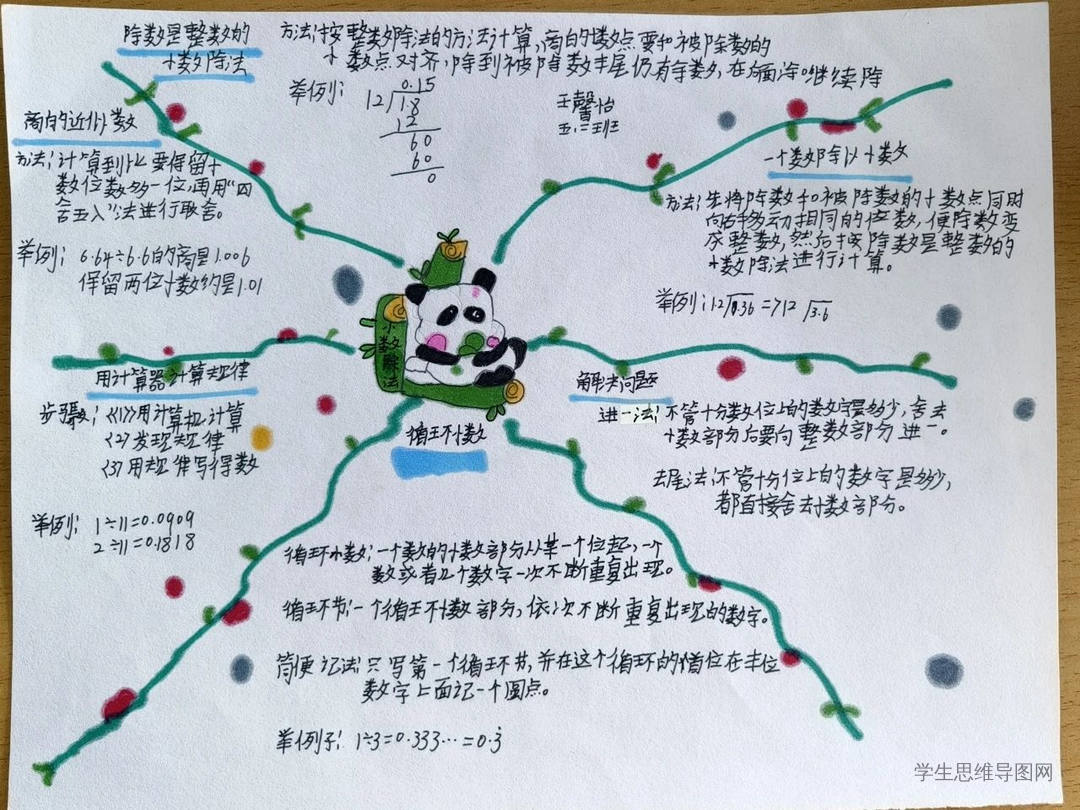 除数是整数的
小数除法
方法:按整数除法的方法计算,商的小数点要和被除数的
小数点对齐,除到被除数末尾仍有余数,在后面添0继续除
举例:
0.15
12 1.8
12
60
60
0
王馨怡
五.二班
商的近似数
方法:计算到比要得留小
数位数多一位,再用“四
舍五入”法进行取舍。
举例: 6.64÷6.6的商是1.006
保留两位小数约是1.01
一个数除以小数
方法:先将除数和被除数的小数点同时
向右移动相同的位数,使除数变
成整数,然后按除数是整数的
小数除法进行计算。
举例:1.2 0.36 =712 3.6
小数除法
用计算器计算规律
步骤:<1>用计算机计算
<2>发现规律
<3>用规律写得数
举例: 1÷11=0.0909
2÷11=0.1818
解决问题
进一法:不管十分数位上的数字是多少,舍去
小数部分后要向整数部分进一。
去尾法:不管十分位上的数字是多少,
都直接舍去小数部分。
循环小数
循环小数:一个数的小数部分从某一个位起,一个
数或者几个数字一次不断重复出现。
循环节:一个循环小数部分,依次不断重复出现的数字。
简便记法:只写第一个循环节,并在这个循环的首位在末位
数字上面记一个圆点。
举例子: 1÷3=0.333…=0.3̇
学生思维导图网